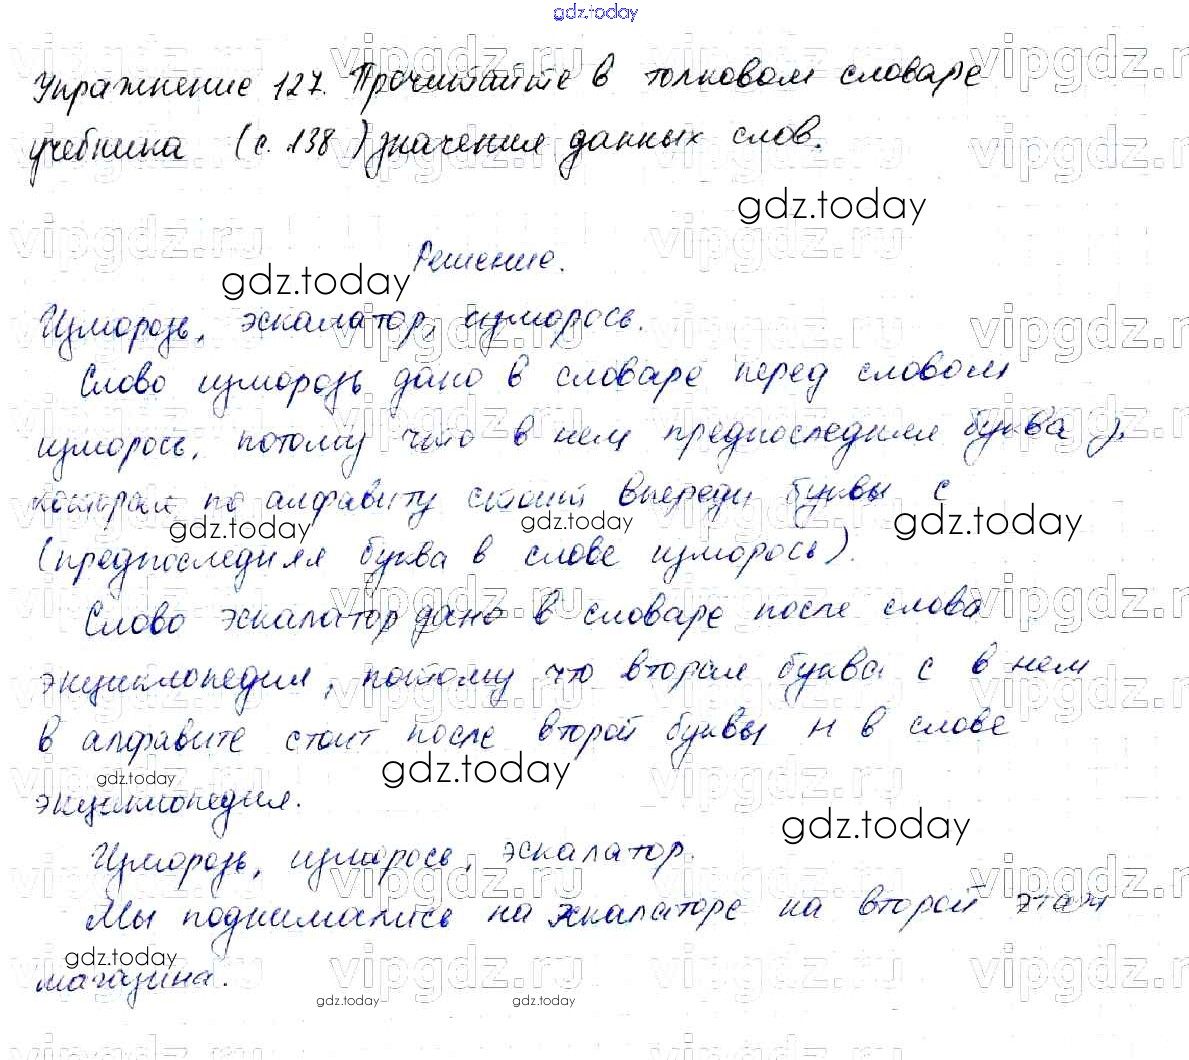 gdz.today
Упражнение 127. Прочитайте в толковом словаре
учебника (с. 138) значения данных слов.
gdz.today
Решение.
gdz.today
Изморозь, эскалатор, изморось.
Слово изморозь дано в словаре перед словом
изморось, потому что в нем предпоследняя буква з,
которая по алфавиту стоит впереди буквы с
gdz.today gdz.today gdz.today
(предпоследняя буква в слове изморось).
Слово эскалатор дано в словаре после слова
энциклопедия, потому что вторая буква с в нем
в алфавите стоит после второй буквы н в слове
gdz.today gdz.today
энциклопедия.
gdz.today
Изморозь, изморось, эскалатор.
Мы поднимались на эскалаторе на второй этаж
gdz.today
магазина.
gdz.today gdz.today